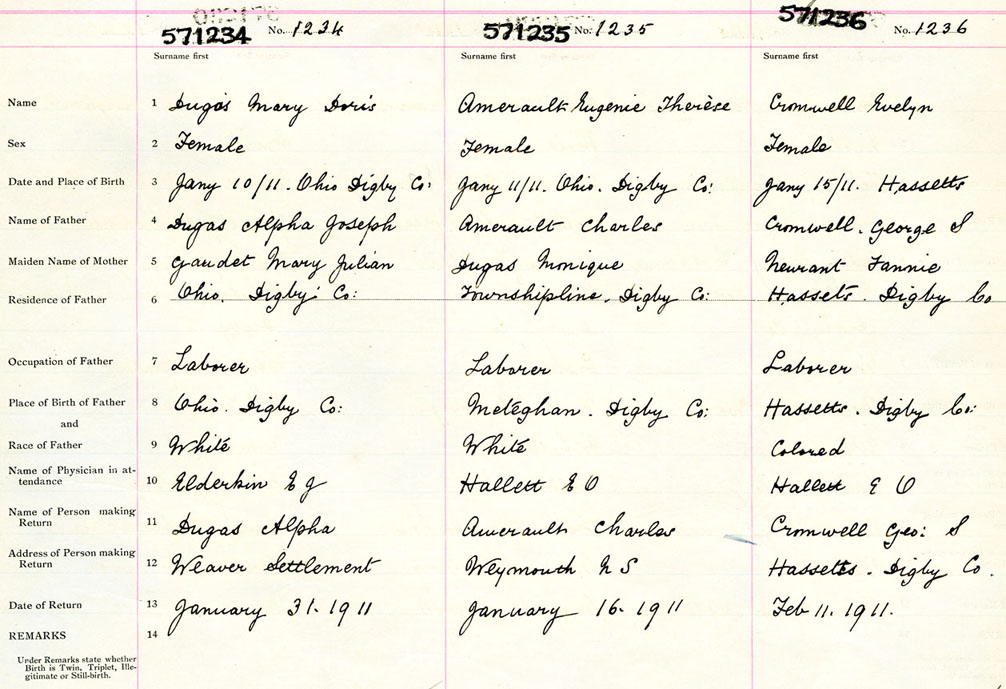 571234 No. 1234 571235 No. 1235 571236 No. 1236
Surname first Surname first Surname first
Name 1 Dugas Mary Doris Amerault Eugenie Therèse Cromwell Evelyn
Sex 2 Female Female Female
Date and Place of Birth 3 Jany 10/11. Ohio Digby Co: Jany 11/11. Ohio. Digby Co: Jany 15/11. Hassetts
Name of Father 4 Dugas Alpha Joseph Amerault Charles Cromwell. George S
Maiden Name of Mother 5 Gaudet Mary Julian Dugas Monique Fannie
Residence of Father 6 Ohio. Digby Co: Townshipline. Digby Co: Hassets. Digby Co
Occupation of Father 7 Laborer Laborer Laborer
Place of Birth of Father 8 Ohio. Digby Co: Meteghan. Digby Co: Hassetts. Digby Co:
and
Race of Father 9 White White Colored
Name of Physician in at-
tendance 10 Elderkin E J Hallett E O Hallett E O
Name of Person making
Return 11 Dugas Alpha Amerault Charles Cromwell Geo: S
Address of Person making
Return 12 Weaver Settlement Weymouth N S Hassetts. Digby Co.
Date of Return 13 January 31. 1911 January 16. 1911 Feb 11. 1911.
REMARKS 14
Under Remarks state whether
Birth is Twin, Triplet, Ille-
gitimate or Still-birth.